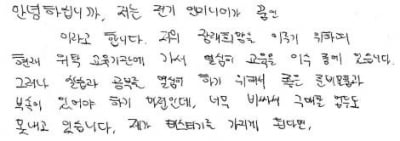 안녕하십니까, 저는 전기 엔지니어가 꿈인
이라고 합니다. 저의 장래희망을 이루기 위하여
현재 위탁 교육기관에 가서 열심히 교육을 이수 중에 있습니다.
그러나 실습과 공부를 열심히 하기 위해서 좋은 준비물과
부속이 있어야 하기 마련인데, 너무 비싸서 구매를 엄두도
못내고 있습니다, 제가 테스터기를 가지게 된다면,